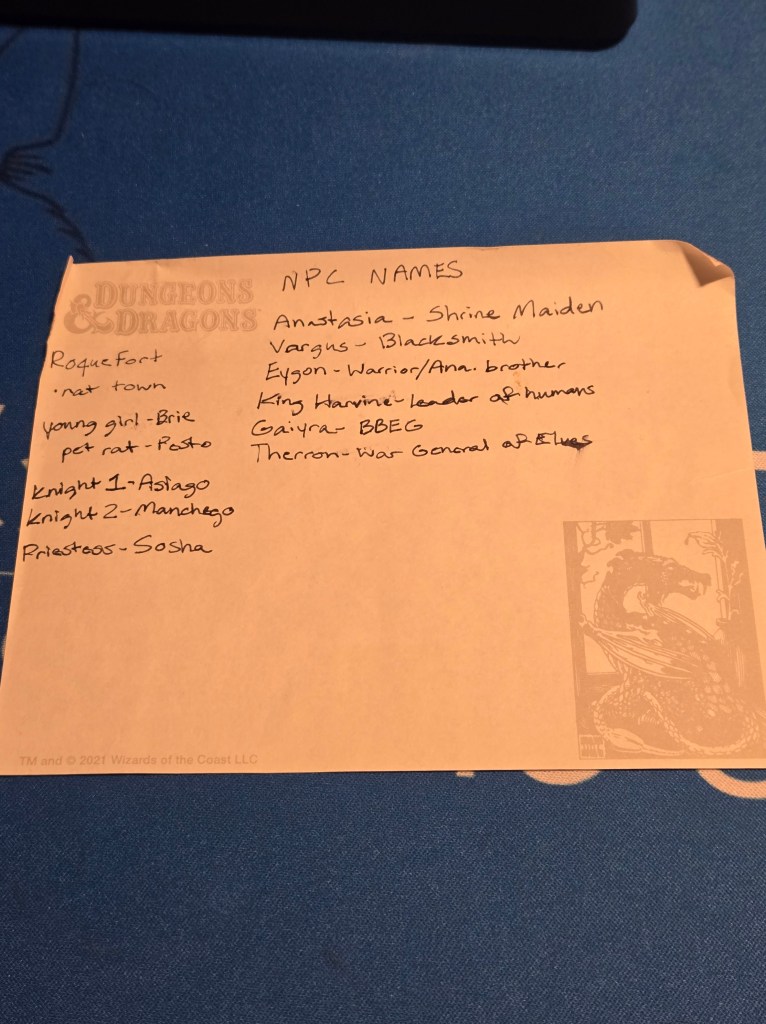 DUNGEONS
& DRAGONS
NPC NAMES
Anastasia - Shrine Maiden
Vargus - Blacksmith
Eygon - Warrior/Ana. brother
King Harvine - leader of humans
Gaiyra - BBEG
Therron - War General of Elves
Roquefort
• rat town
young girl - Brie
pet rat - Pesto
Knight 1 - Asiago
Knight 2 - Manchego
Priestess - Sosha
TM and © 2021 Wizards of the Coast LLC